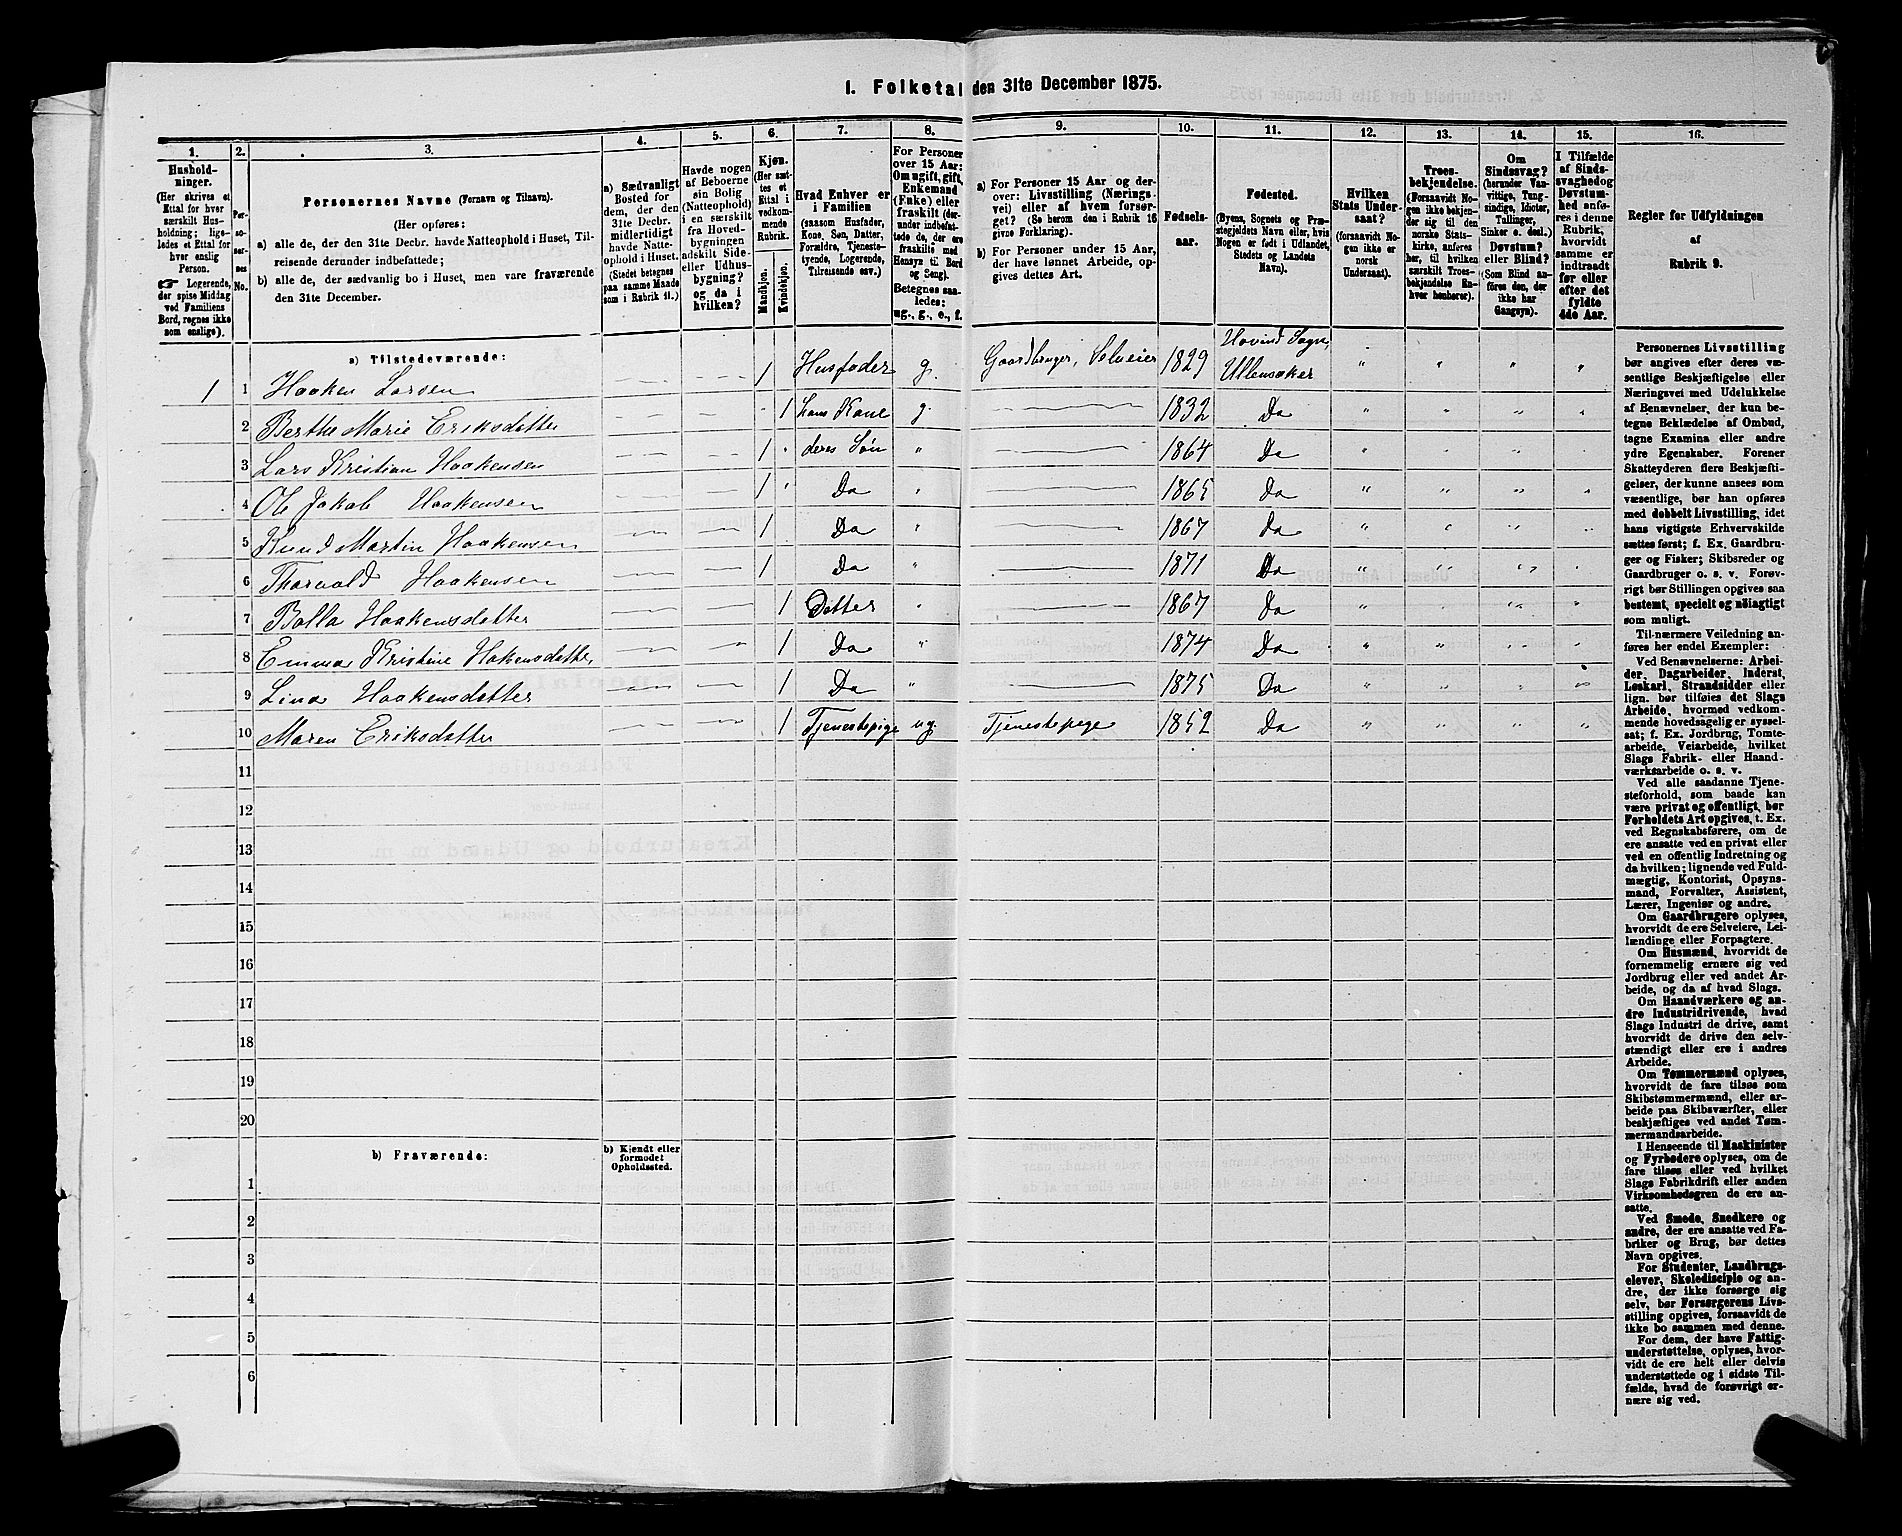 I. Folketal den 31te December 1875.
1.
Hushold-
ninger.
(Her skrives et
Ettal for hver
særskilt Hus-
holdning; lige-
ledes et Ettal for
hver enslig
Person.
☛ Logerende,
der spise Middag
ved Familiens
Bord, regnes ikke
som enslige).
2.
Per-
so-
ner-
nes
No.
3.
Personernes Navne (Fornavn og Tilnavn).
(Her opføres:
a) alle de, der den 31te Decbr. havde Natteophold i Huset, Til-
reisende derunder indbefattede;
b) alle de, der sædvanlig bo i Huset, men vare fraværende
den 31te December.
4.
a) Sædvanligt
Bosted for
dem, der den
31te Decbr.
midlertidigt
havde Natte-
ophold i Huset.
(Stedet betegnes
paa samme Maade
som i Rubrik 11.)
5.
Havde nogen
af Beboerne
sin Bolig
(Natteophold)
i en særskilt
fra Hoved-
bygningen
adskilt Side-
eller Udhus-
bygning?
og da i
hvilken?
6.
Kjøn.
(Her sæt-
tes et
Ettal i
vedkom-
mende
Rubrik.
Mandkjøn.
Kvindekjøn.
7.
Hvad Enhver er
i Familien
(saasom Husfader,
Kone, Søn, Datter,
Forældre, Tjeneste-
tyende, Logerende,
Tilreisende osv.)
8.
For Personer
over 15 Aar:
Om ugift, gift,
Enkemand
(Enke) eller
fraskilt (der-
under indbefat-
tede de, der ere
fraskilte med
Hensyn til Bord
og Seng).
Betegnes saa-
ledes:
ug., g., e., f.
9.
a) For Personer 15 Aar og der-
over: Livsstilling (Nærings-
vei) eller af hvem forsør-
get? (Se herom den i Rubrik 16
givne Forklaring).
b) For Personer under 15 Aar,
der have lønnet Arbeide, op-
gives dettes Art.
10.
Fødsels-
aar.
11.
Fødested.
(Byens, Sognets og Præ-
stegjeldets Navn eller, hvis
Nogen er født i Udlandet,
Stedets og Landets
Navn).
12.
Hvilken
Stats Under-
saat?
(forsaavidt No-
gen ikke er
norsk
Undersaat).
13.
Troes-
bekjendelse.
(Forsaavidt No-
gen ikke bekjen-
der sig til den
norske Stats-
kirke, anføres
her, til hvilken
særskilt Troes-
bekjendelse En-
hver henhører).
14.
Om
Sindssvag?
(herunder Van-
vittige, Tung-
sindige, Idioter,
Tullinger,
Sinker o. desl.)
Døvstum?
eller Blind?
(Som Blind an-
føres den, der
ikke har
Gangsyn).
15.
I Tilfælde
af Sinds-
svaghed og
Døvstum-
hed anfø-
res i denne
Rubrik,
hvorvidt
samme er
indtraadt
før eller
efter det
fyldte
4de Aar.
16.
Regler for Udfyldningen
af
Rubrik 9.
a) Tilstedeværende:
1 1 Haaken Larsen — — 1 Husfader g. Gaardbruger, Selveier 1829 Hovind Sogn, Ullensaker " " " "
2 Berthe Marie Eriksdatter — — " 1 hans Kone g. — 1832 Do " " " "
3 Lars Kristian Haakensen — — 1 " deres Søn " — 1864 Do " " " "
4 Ole Jakob Haakensen — — 1 " Do " — 1865 Do " " " "
5 Knud Martin Haakensen — — 1 Do " — 1867 Do " " " "
6 Thorvald Haakensen — — 1 Do " — 1871 Do " " " "
7 Bolla Haakensdatter — — 1 Datter " — 1867 Do " " " "
8 Emma Kristine Hakensdatter — — 1 Do " — 1874 Do " " " "
9 Lina Haakensdatter — — 1 Do " — 1875 Do " " " "
10 Maren Eriksdatter — — 1 Tjenestepige ug. Tjenestepige 1852 Do " " " "
11
12
13
14
15
16
17
18
19
20
b) Fraværende:
b) Kjendt eller
formodet
Opholdssted.
1
2
3
4
5
6
Personernes Livsstilling
bør angives efter deres væ-
sentlige Beskjæftigelse eller
Næringsvei med Udelukkelse
af Benævnelser, der kun be-
tegne Beklædelse af Ombud,
tagne Examina eller andre
ydre Egenskaber. Forener
Skatteyderen flere Beskjæfti-
gelser, der kunne ansees som
væsentlige, bør han opføres
med dobbelt Livsstilling, idet
hans vigtigste Erhvervskilde
sættes først; f. Ex. Gaardbru-
ger og Fisker; Skibsreder og
Gaardbruger o. s. v. Forøv-
rigt bør Stillingen opgives saa
bestemt, specielt og nøiagtigt
som muligt.
Til nærmere Veiledning an-
føres her endel Exempler:
Ved Benævnelserne: Arbei-
der, Dagarbeider, Inderst,
Løskarl, Strandsidder eller
lign. bør tilføies det Slags
Arbeide, hvormed vedkom-
mende hovedsagelig er syssel-
sat; f. Ex. Jordbrug, Tomte-
arbeide, Veiarbeide, hvilket
Slags Fabrik- eller Haand-
værksarbeide o. s. v.
Ved alle saadanne Tjene-
steforhold, som baade kan
være privat og offentligt, bør
Forholdets Art opgives, t. Ex.
ved Regnskabsførere, om de
ere ansatte ved en privat eller
ved en offentlig Indretning og
da hvilken; lignende ved Fuld-
mægtig, Kontorist, Opsyns-
mand, Forvalter, Assistent,
Lærer, Ingeniør og andre.
Om Gaardbrugere oplyses,
hvorvidt de ere Selveiere, Lei-
lændinge eller Forpagtere.
Om Husmænd, hvorvidt de
fornemmelig ernære sig ved
Jordbrug eller ved andet Ar-
beide, og da af hvad Slags.
Om Haandværkere og an-
dre Industridrivende, hvad
Slags Industri de drive, samt
hvorvidt de drive den selv-
stændigt eller ere i andres
Arbeide.
Om Tømmermænd oplyses,
hvorvidt de fare tilsøs som
Skibstømmermænd, eller ar-
beide paa Skibsværfter, eller
beskjæftiges ved andet Tøm-
mermandsarbeide.
I Henseende til Maskinister
og Fyrbødere oplyses, om de
fare tilsøs eller ved hvilket
Slags Fabrikdrift eller anden
Virksomhedsgren de ere an-
satte.
Ved Smede, Snedkere og
andre, der ere ansatte ved Fa-
briker og Brug, bør dettes
Navn opgives.
For Studenter, Landbrugs-
elever, Skoledisciple og an-
dre, der ikke forsørge sig
selv, bør Forsørgerens Livs-
stilling opgives, forsaavidt de
ikke bo sammen med denne.
For dem, der have Fattig-
understøttelse, oplyses, hvor-
vidt de ere helt eller delvis
understøttede og i sidste Til-
fælde, hvad de forøvrigt er-
nære sig ved.